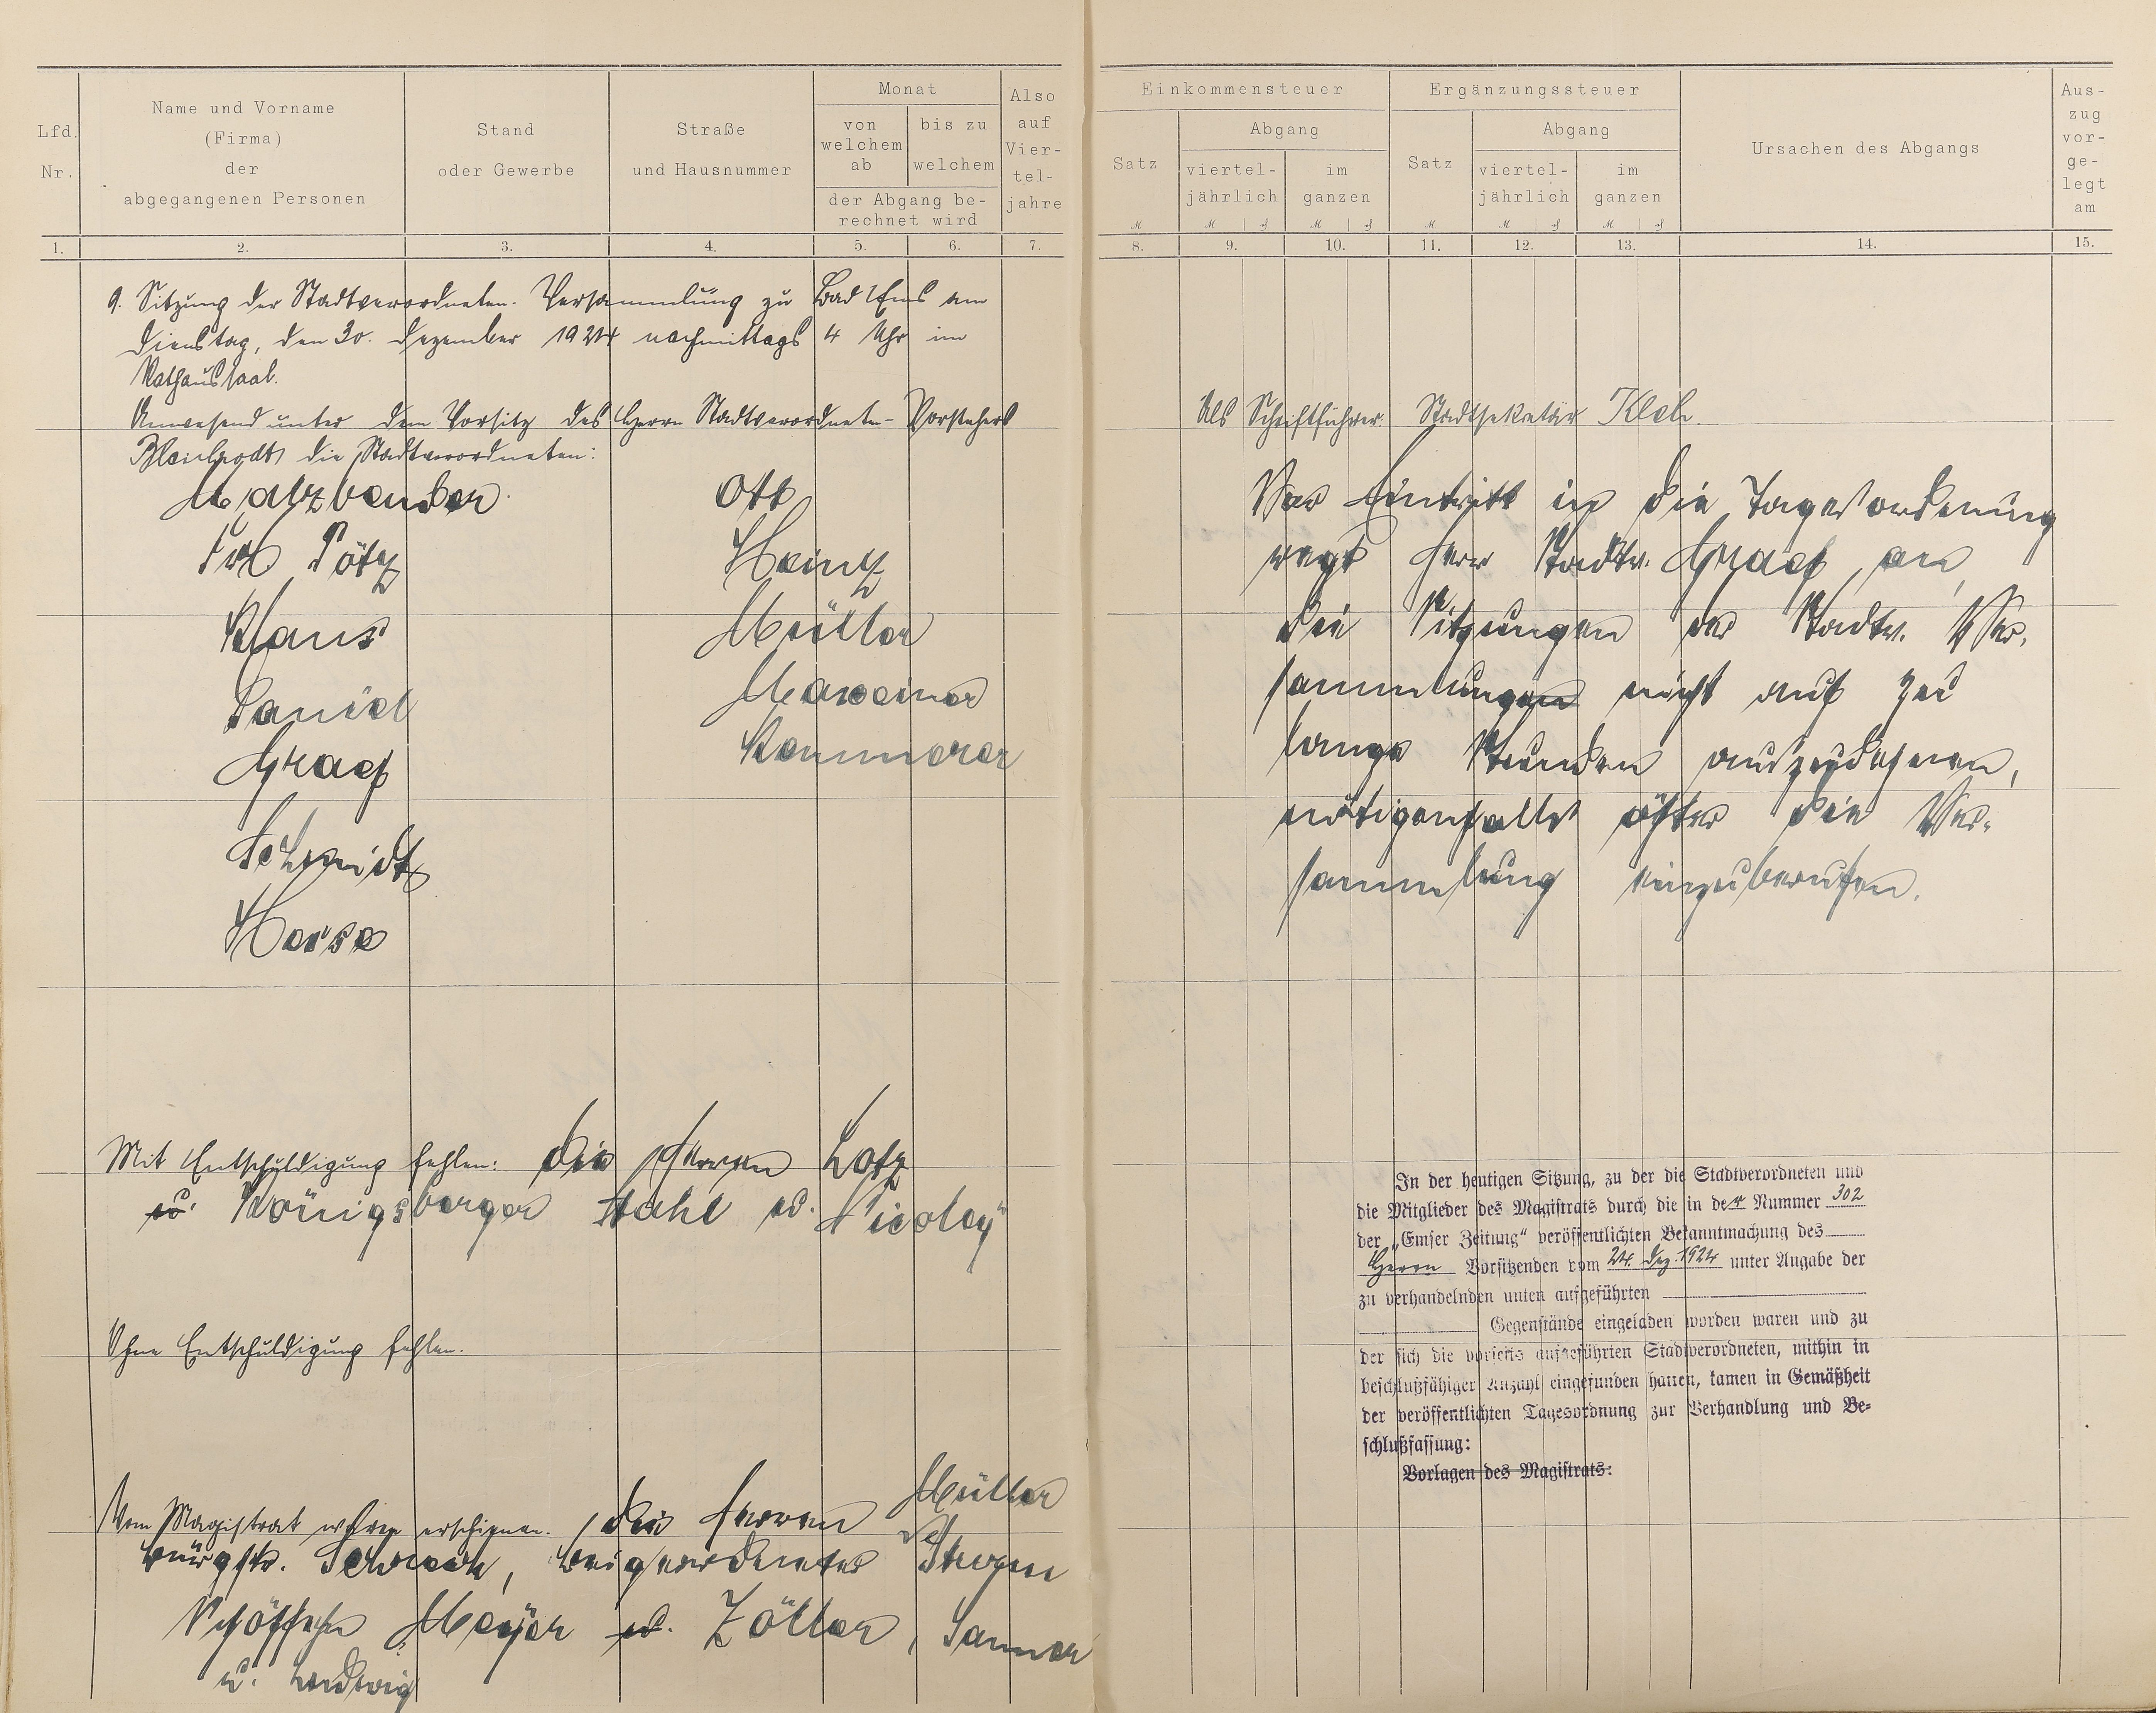 Lfd. Nr.
Name und Vorname
(Firma)
der
abgegangenen Personen
Stand
oder Gewerbe
Straße
und Hausnummer
Monat
von welchem ab
bis zu welchem
der Abgang be-
rechnet wird
Also auf Vier-tel-jahre
1. 2. 3. 4. 5. 6. 7.
9. Sitzung der Stadtverordneten-Versammlung zu Bad Ems am
Dienstag, den 30. Dezember 1924 nachmittags 4 Uhr im
Rathaussaal.
Anwesend unter dem Vorsitz des Herrn Stadtverordneten-Vorstehers
die Stadtverordneten:
Marzbander Ott
Frl. Pötz Heinz
Klaus Müller
Daniel Maxeiner
Graef Kammerer
Schmidt
Hasse
Mit Entschuldigung fehlen: die Herren Lotz
u. Königsberger Stahl u. Nicolay
Ohne Entschuldigung fehlen.
Vom Magistrat waren erschienen. die Herren Müller
Bürgstr. Schreck, Beigeordneter Sturm
Schöffen Meyer u. Zöller, Sanner
u. Ludwig
Einkommensteuer
Satz
Abgang
viertel-
jährlich
im
ganzen
Ergänzungssteuer
Satz
Abgang
viertel-
jährlich
im
ganzen
Ursachen des Abgangs
Aus-
zug
vor-
ge-
legt
am
8. 9. 10. 11. 12. 13. 14. 15.
Als Schriftführer Stadtsekretär Kleh.
Vor Eintritt in die Tagesordenung
regt Herr Stadtv. Graef an,
die Sitzungen der Stadtv. Ver-
sammlungen nicht auf zu
lange Stunden auszudehnen,
nötigenfalls öfter die Ver-
sammlung einzuberufen.
In der heutigen Sitzung, zu der die Stadtverordneten und
die Mitglieder des Magistrats durch die in der Nummer 302
der „Emser Zeitung“ veröffentlichten Bekanntmachung des
Herrn Vorsitzenden vom 24. Dez. 1924 unter Angabe der
zu verhandelnden unten aufgeführten
Gegenstände eingeladen worden waren und zu
der sich die vorseits aufgeführten Stadtverordneten, mithin in
beschlußfähiger Anzahl eingefunden hatten, kamen in Gemäßheit
der veröffentlichten Tagesordnung zur Verhandlung und Be-
schlußfassung:
Vorlagen des Magistrats: